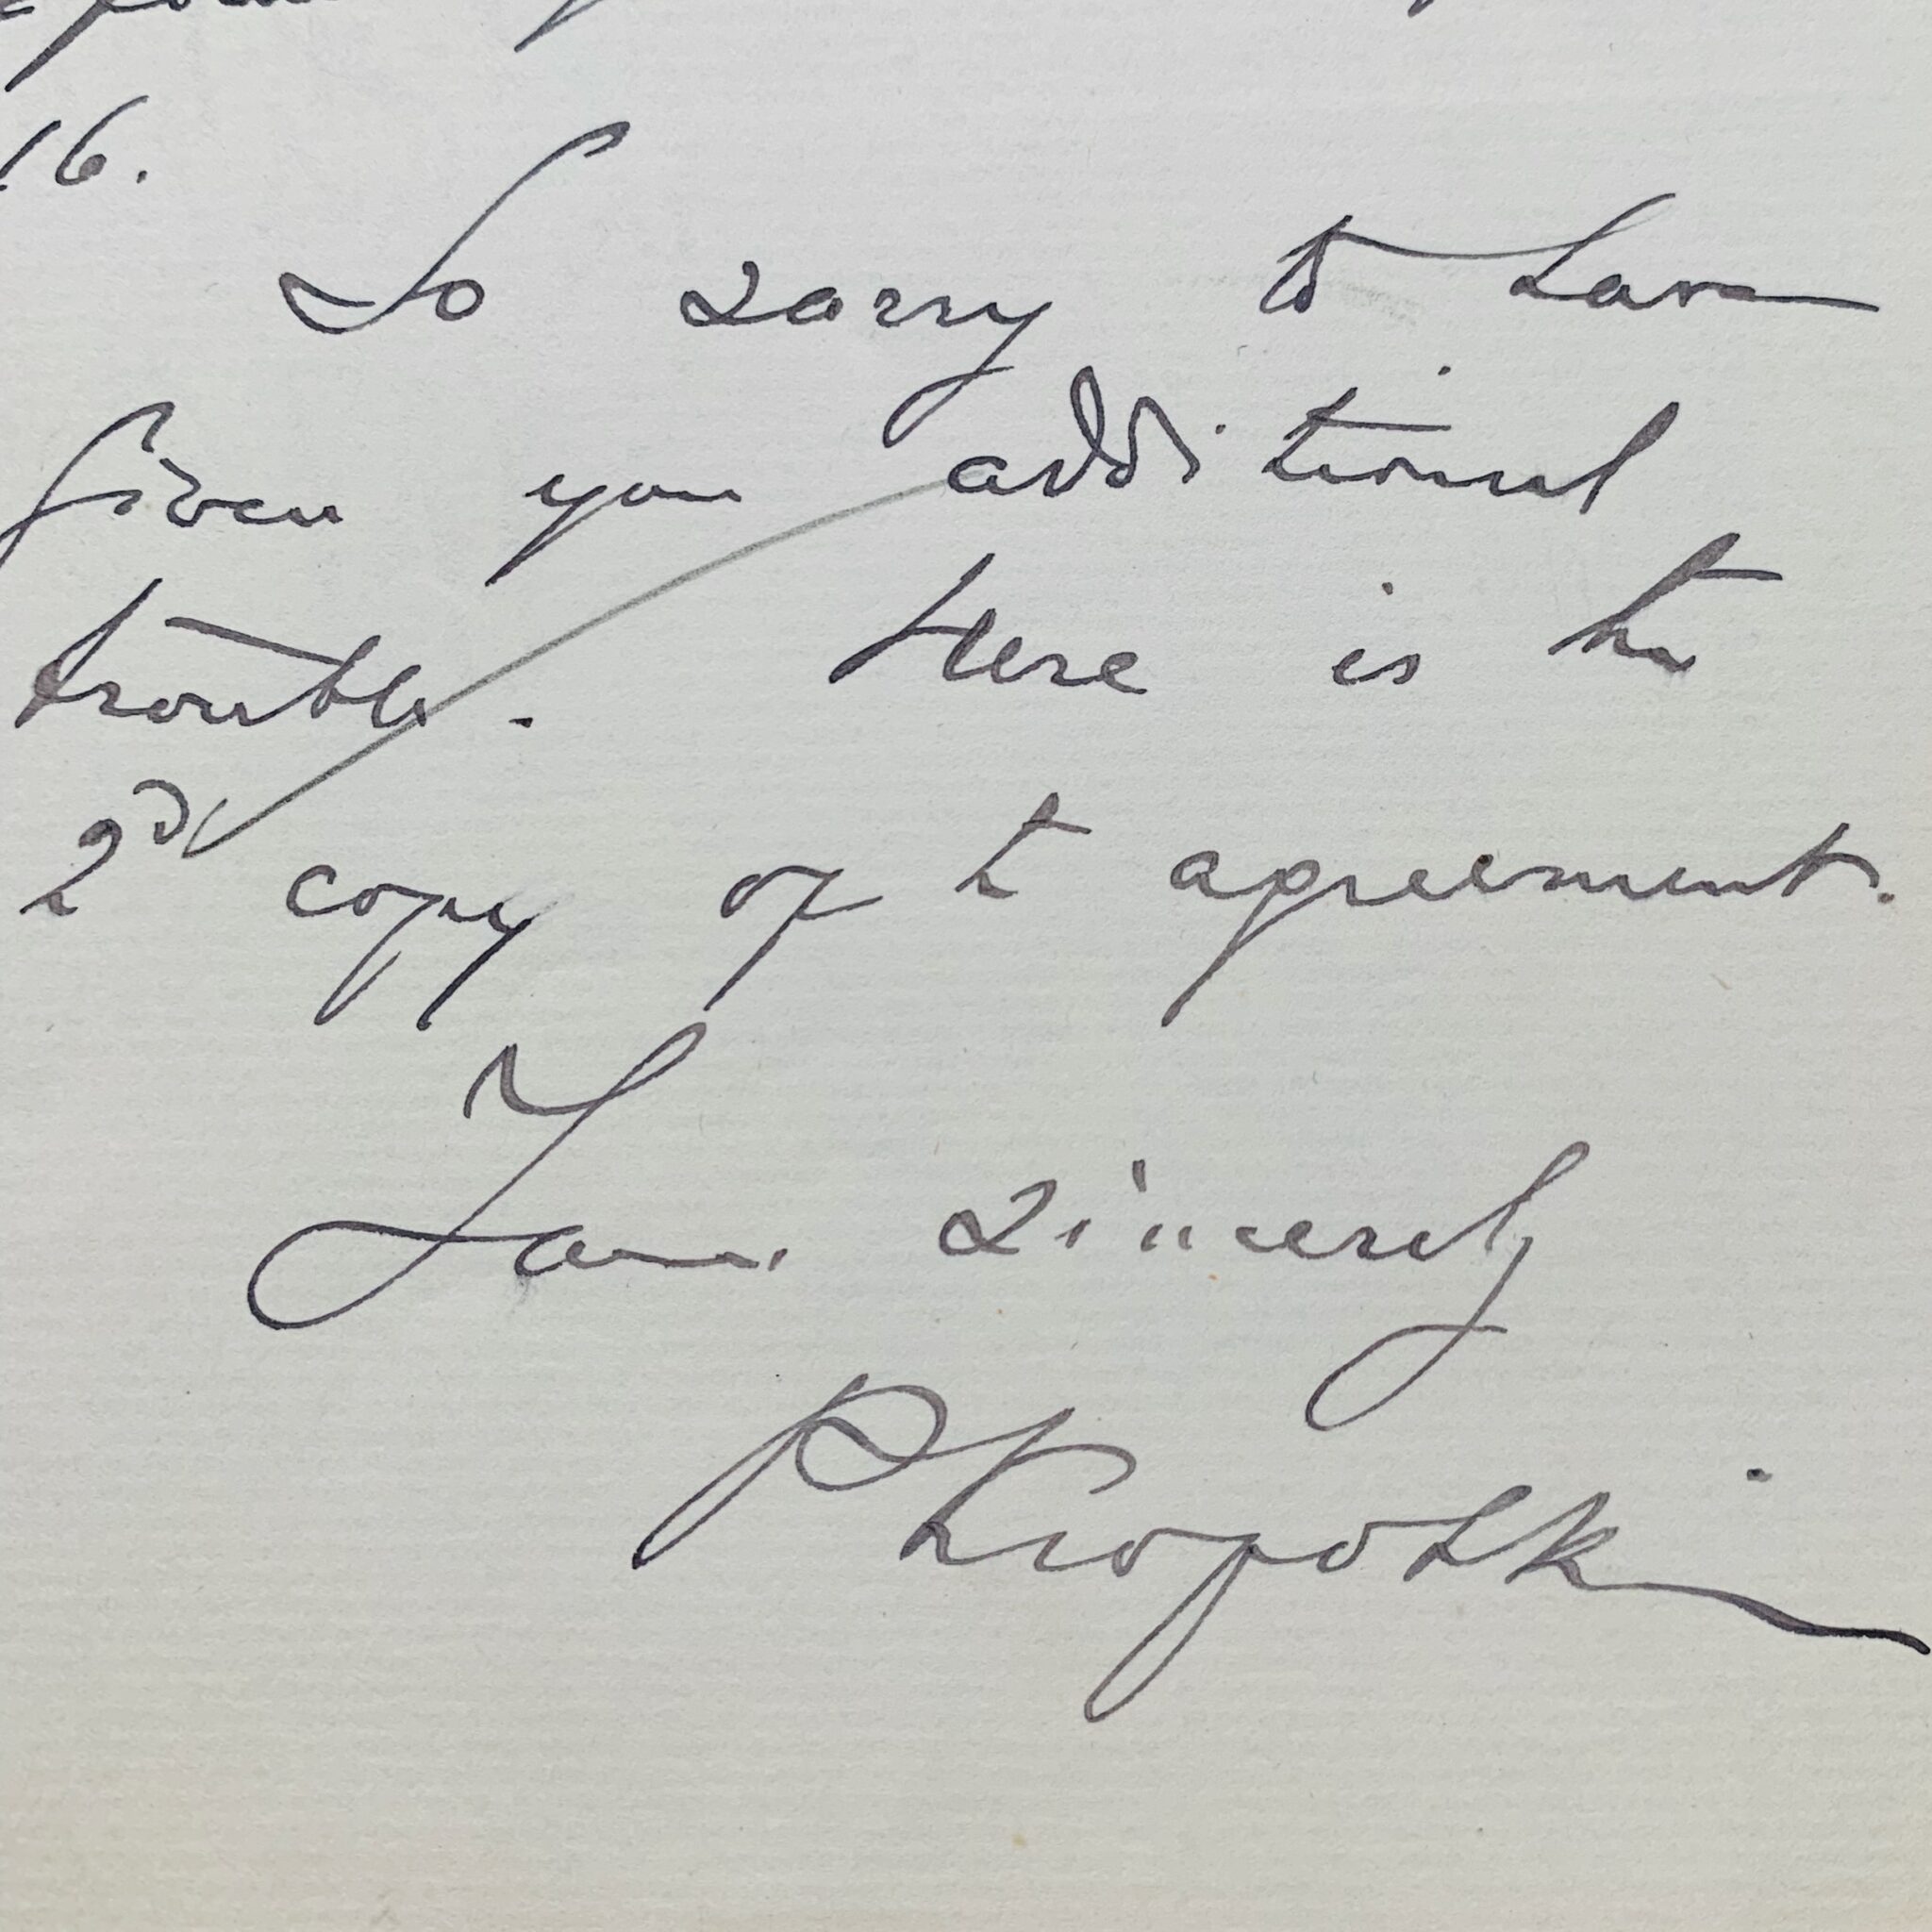 16.
So sorry to have
given you additional
trouble. Here is the
2d copy of t agreement.
Yours sincerely
PKropotkin